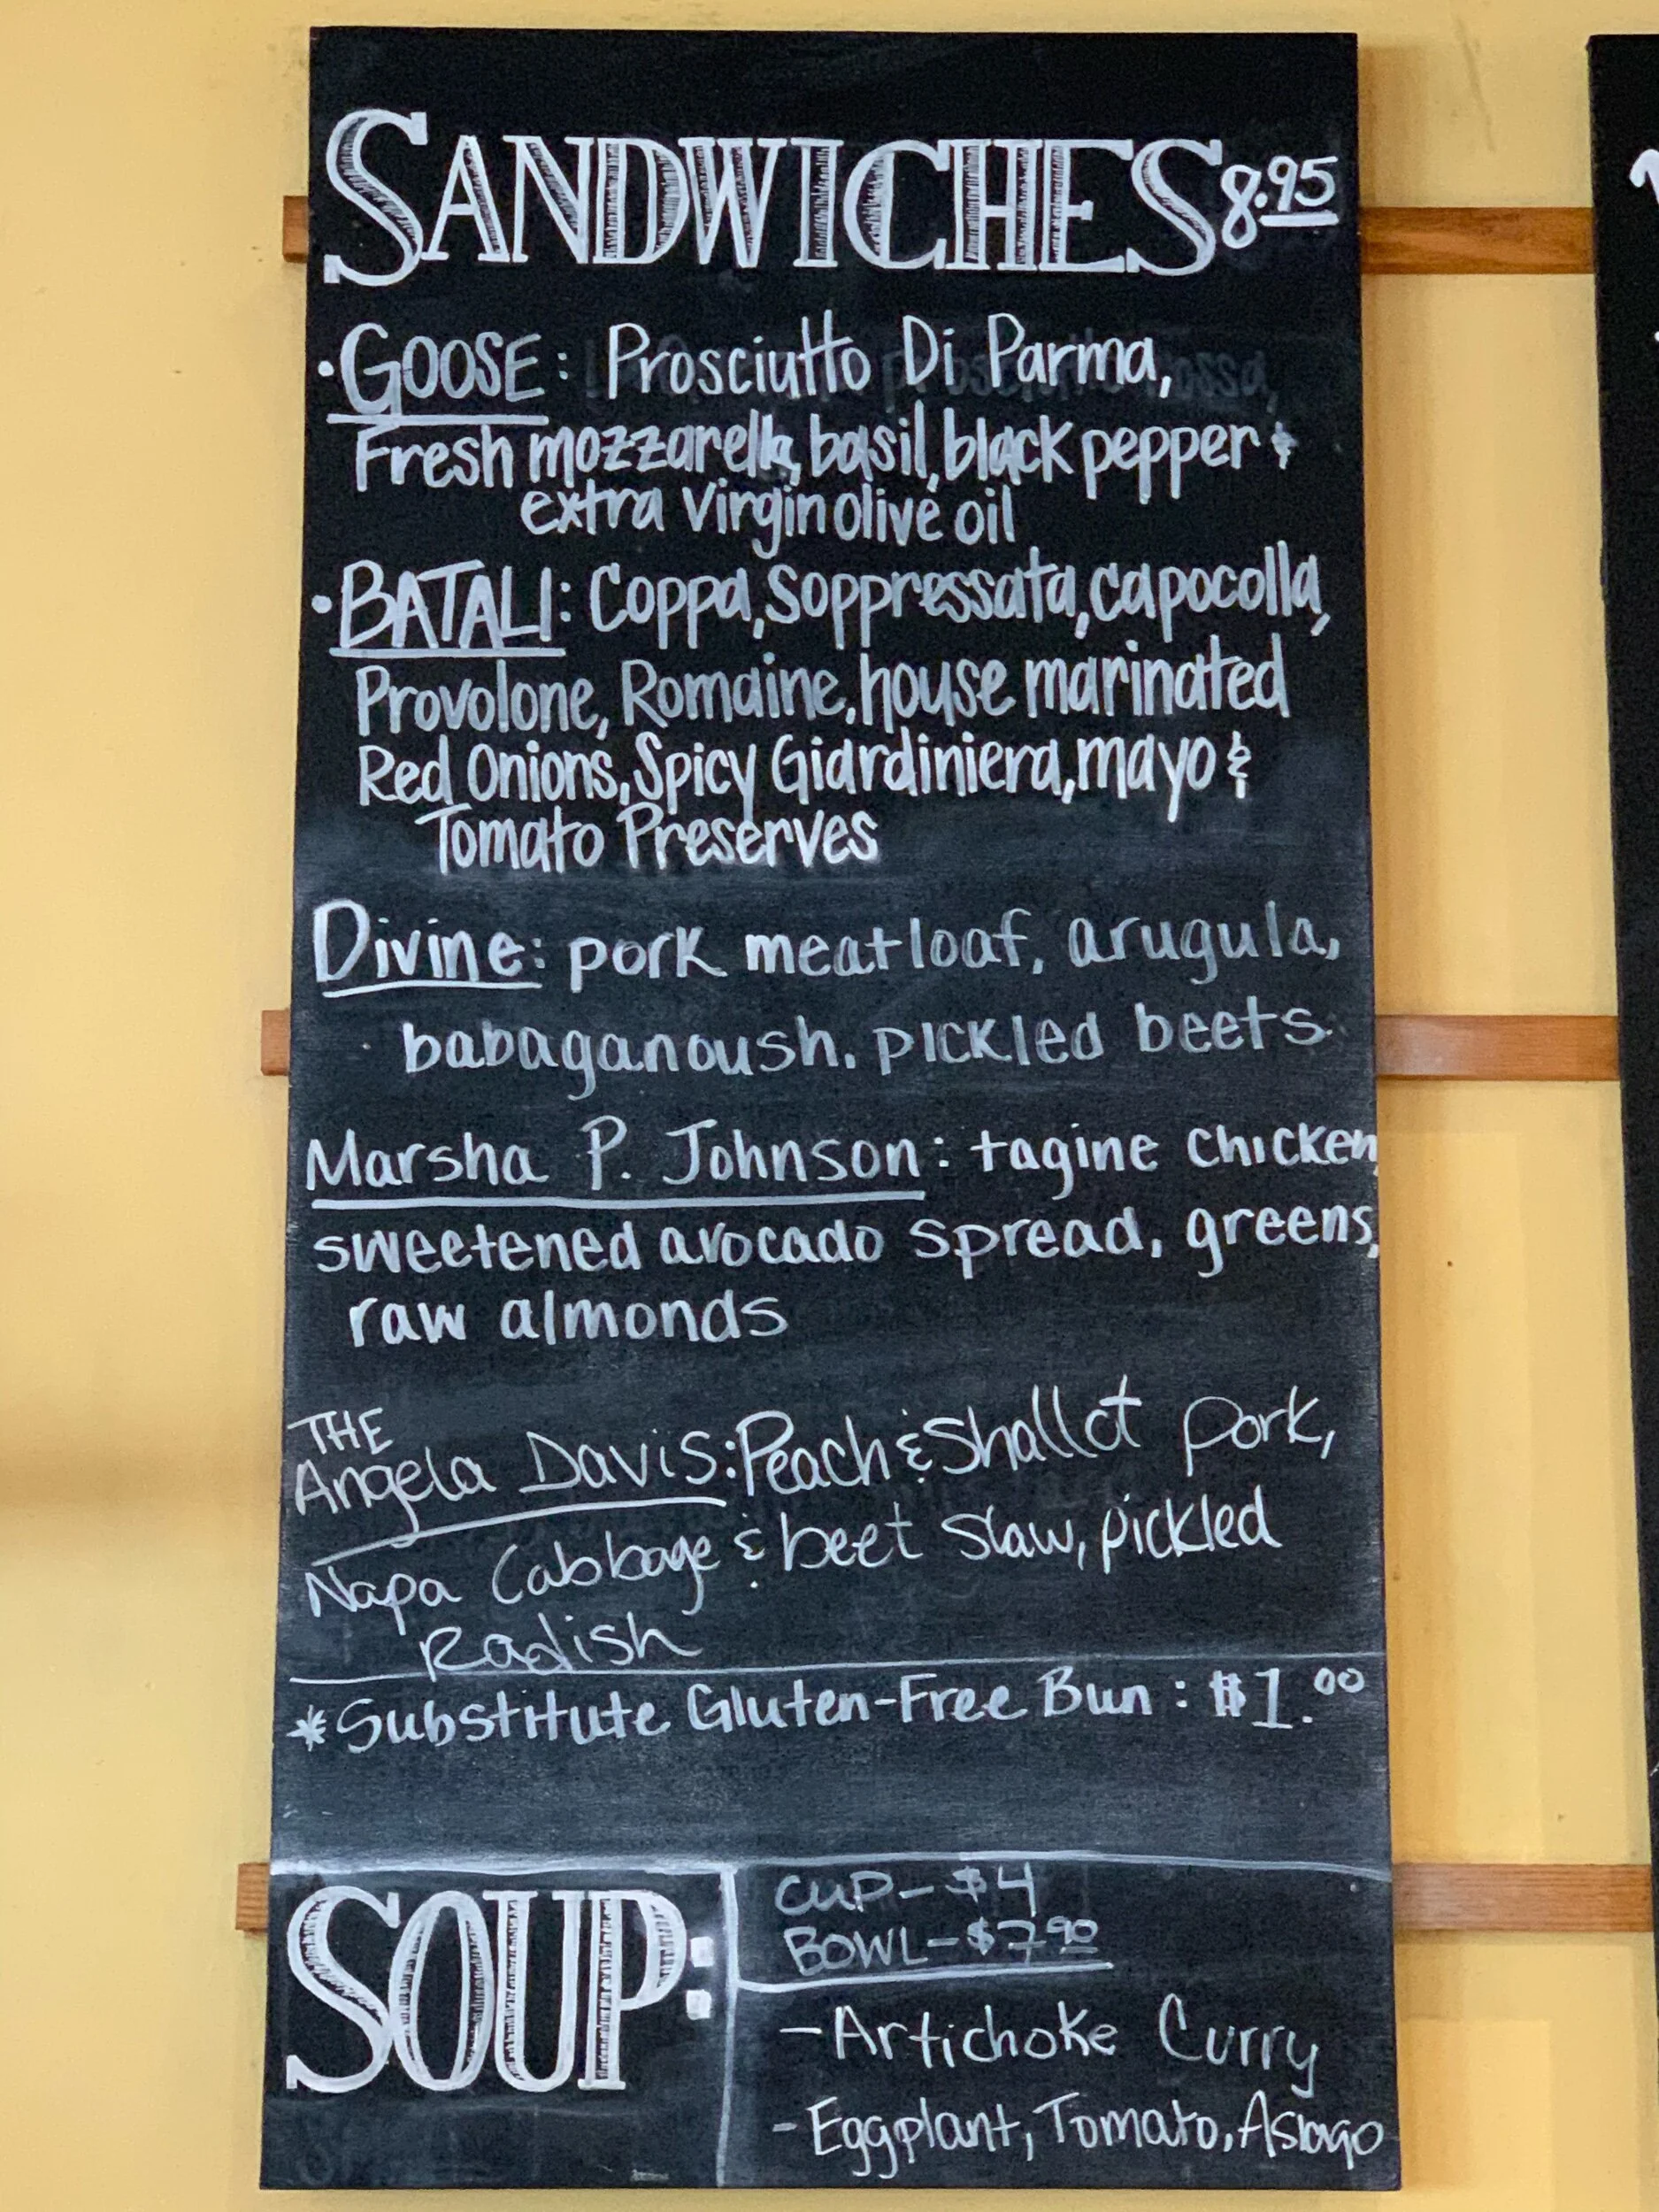 SANDWICHES 8.95
·GOOSE: Prosciutto Di Parma,
Fresh mozzarella, basil, black pepper &
extra virgin olive oil
·BATALI: Coppa, Soppressata, capocolla,
Provolone, Romaine, house marinated
Red Onions, Spicy Giardiniera, mayo &
Tomato Preserves
Divine: pork meatloaf, arugula,
babaganoush. pickled beets
Marsha P. Johnson: tagine chicken,
sweetened avocado spread, greens,
raw almonds
THE
Angela Davis: Peach & Shallot pork,
Napa Cabbage & beet slaw, pickled
Radish
*Substitute Gluten-Free Bun: $1.00
SOUP:
CUP - $4
BOWL - $7.90
- Artichoke Curry
- Eggplant, Tomato, Asiago